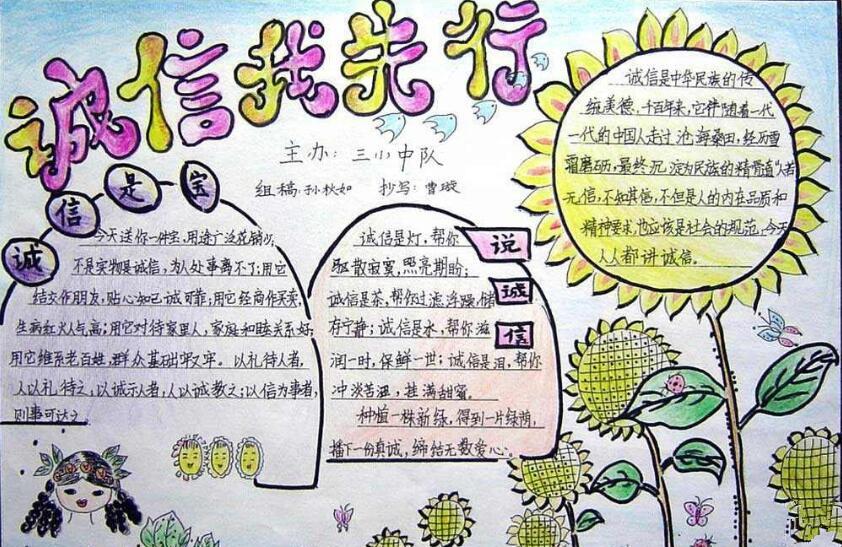 诚信我先行
主办：三小中队
组稿：孙秋如 抄写：曹璇
诚信是宝
今天送你一件宝，用途广泛花销少，
不是实物是诚信，为人处事离不了；用它
结交作朋友，贴心知己诚可靠；用它经商作买卖，
生病红火人气高；用它对待家里人，家庭和睦关系好；
用它维系老百姓，群众基础牢又牢。以礼待人者，
人以礼待之，以诚示人者，人以诚教之；以信为事者，
则事可达之
说诚信
诚信是灯，帮你
驱散寂寞，照亮期盼；
诚信是茶，帮你过滤浮躁，储
存宁静；诚信是水，帮你滋
润一时，保鲜一世；诚信是泪，帮你
冲淡苦涩，挂满甜蜜。
种植一株新绿，得到一片绿荫，
播下一份真诚，缔结无数爱心。
诚信是中华民族的传
统美德，千百年来，它伴随着一代
一代的中国人走过沧海桑田，经历雪
霜磨砺，最终沉淀为民族的精骨道"人若
无信，不知其他，不但是人的内在品质和
精神要求，也应该是社会的规范，今天
人人都讲诚信。